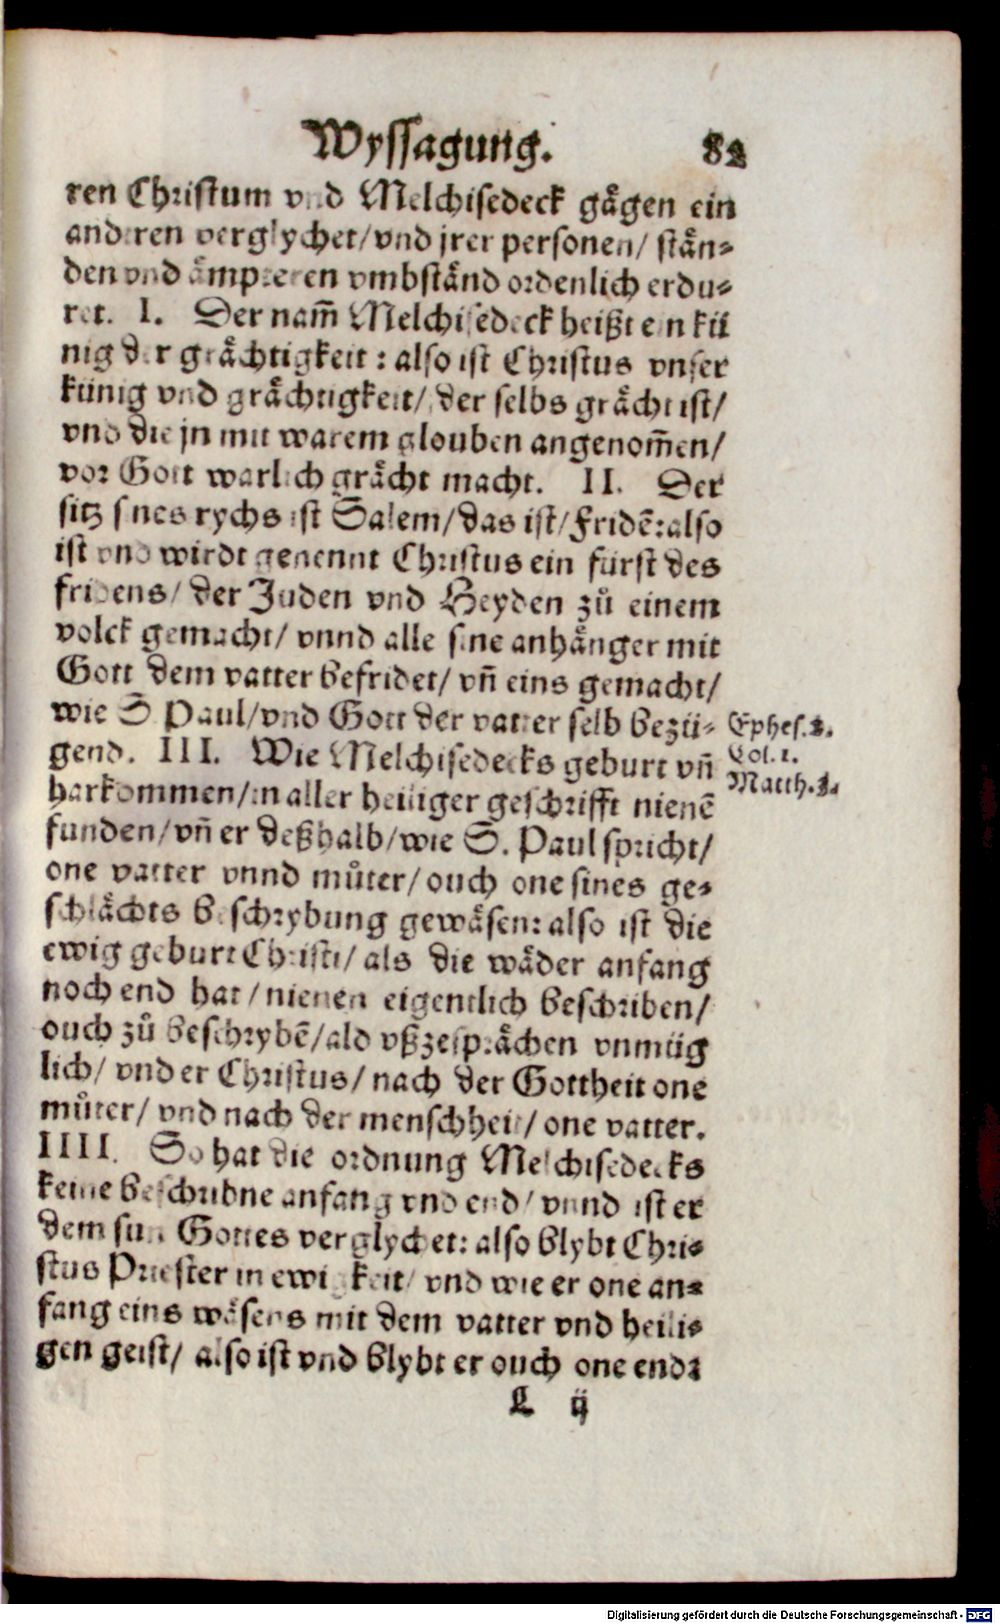 Wyssagung. 82
ren Christum vnd Melchisedeck gågen ein
anderen verglychet/vnd jrer personen/ stån⸗
den vnd åmpteren vmbstånd ordenlich erdu⸗
ret. I. Der nam̄ Melchisedeck heißt ein kü
nig der gråchtigkeit: also ist Christus vnser
künig vnd gråchtigkeit/ der selbs grächt ist/
vnd die jn mit warem glouben angenom̄en/
vor Gott warlich grächt macht. II. Der
sitz sines rychs ist Salem/das ist/Fridē:also
ist vnd wirdt genennt Christus ein fürst des
fridens/ der Juden vnd Heyden zů einem
volck gemacht/ vnnd alle sine anhånger mit
Gott dem vatter befridet/ vn̄ eins gemacht/
wie S. Paul/vnd Gott der vatter selb bezü⸗
gend. III. Wie Melchisedecks geburt vn̄
harkommen/in aller heiliger geschrifft nienē
funden/vn̄ er deßhalb/wie S. Paul spricht/
one vatter vnnd můter/ouch one sines ge⸗
schlåchts beschrybung gewåsen: also ist die
ewig geburt Christi/ als die wåder anfang
noch end hat/nienen eigentlich beschriben/
ouch zů beschrybē/ald vßzespråchen vnmüg
lich/ vnd er Christus/ nach der Gottheit one
můter/ vnd nach der menschheit/ one vatter.
IIII. So hat die ordnung Melchisedecks
keine beschribne anfang vnd end/ vnnd ist er
dem sun Gottes verglychet: also blybt Chri⸗
stus Priester in ewigkeit/ vnd wie er one an⸗
fang eins wåsens mit dem vatter vnd heili⸗
gen geist/ also ist vnd blybt er ouch one end:
L ij
Ephes.2.
Col.1.
Matth.3.
Digitalisierung gefördert durch die Deutsche Forschungsgemeinschaft - DFG